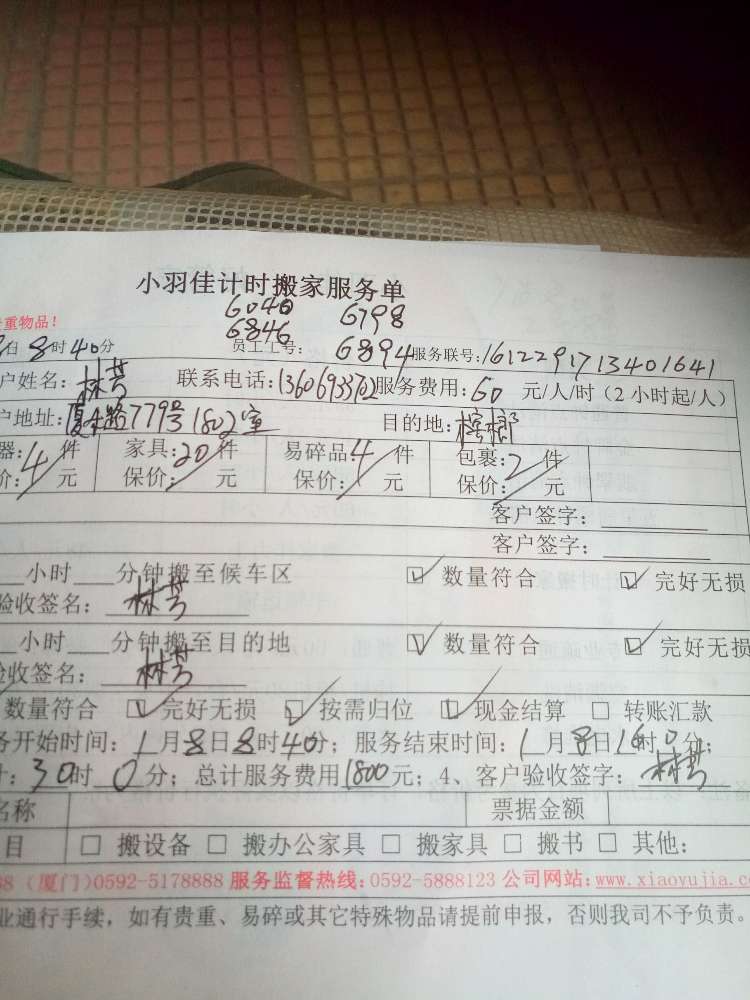 小羽佳计时搬家服务单
6040 6798
贵重物品！ 6846 6894
日8时40分 员工工号： 服务联号：161229171340 1641
户姓名：林芳 联系电话：13606933702 服务费用：60 元/人/时（2小时起/人）
户地址：厦禾路779号1802室 目的地：槟榔
器：4件 家具：20件 易碎品：4件 包裹：2件
价： 元 保价： 元 保价： 元 保价： 元
客户签字：
客户签字：
小时 分钟搬至候车区 ☑ 数量符合 ☑ 完好无损
验收签名：林芳
小时 分钟搬至目的地 ☑ 数量符合 ☑ 完好无损
验收签名：林芳
数量符合 ☑ 完好无损 ☑ 按需归位 ☑ 现金结算 □ 转账汇款
务开始时间：1月8日8时40分；服务结束时间：1月8日16时0分；
计：30时0分；总计服务费用1800元；4、客户验收签字：林芳
名称 票据金额
目 □ 搬设备 □ 搬办公家具 □ 搬家具 □ 搬书 □ 其他：
88 (厦门)0592-5178888 服务监督热线：0592-5888123 公司网站：www.xiaoyujia.c
业通行手续，如有贵重、易碎或其它特殊物品请提前申报，否则我司不予负责。